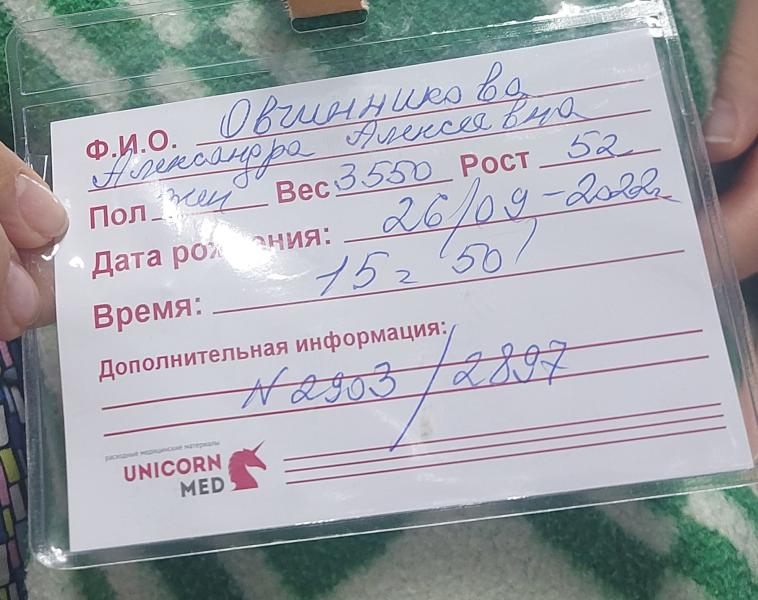 Ф.И.О. Овчинникова
Александра Алексеевна
Пол жен Вес 3550 Рост 52
Дата рождения: 26/09-2022г
Время: 15г 50/
Дополнительная информация:
N 2903/2897
расходные медицинские материалы
UNICORN
MED